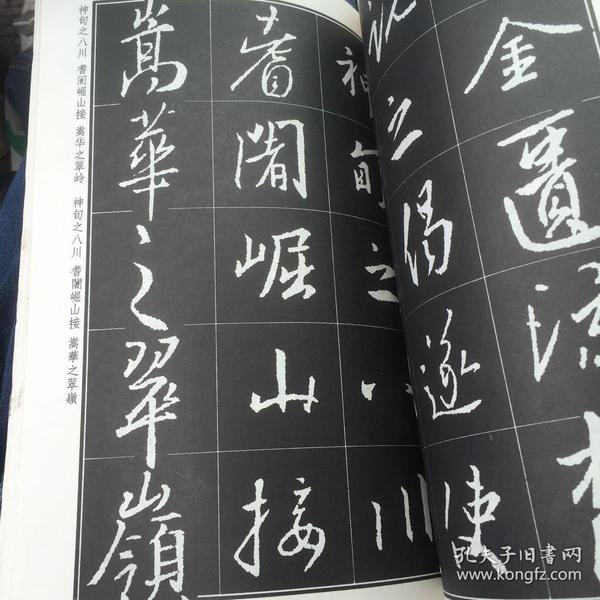 金匱流
之偈遂使
神甸之八川
耆闍崛山接
嵩華之翠嶺
神甸之八川 耆阇崛山接 嵩华之翠岭 神甸之八川 耆闍崛山接 嵩華之翠嶺
孔夫子旧书网
www.kongfz.com